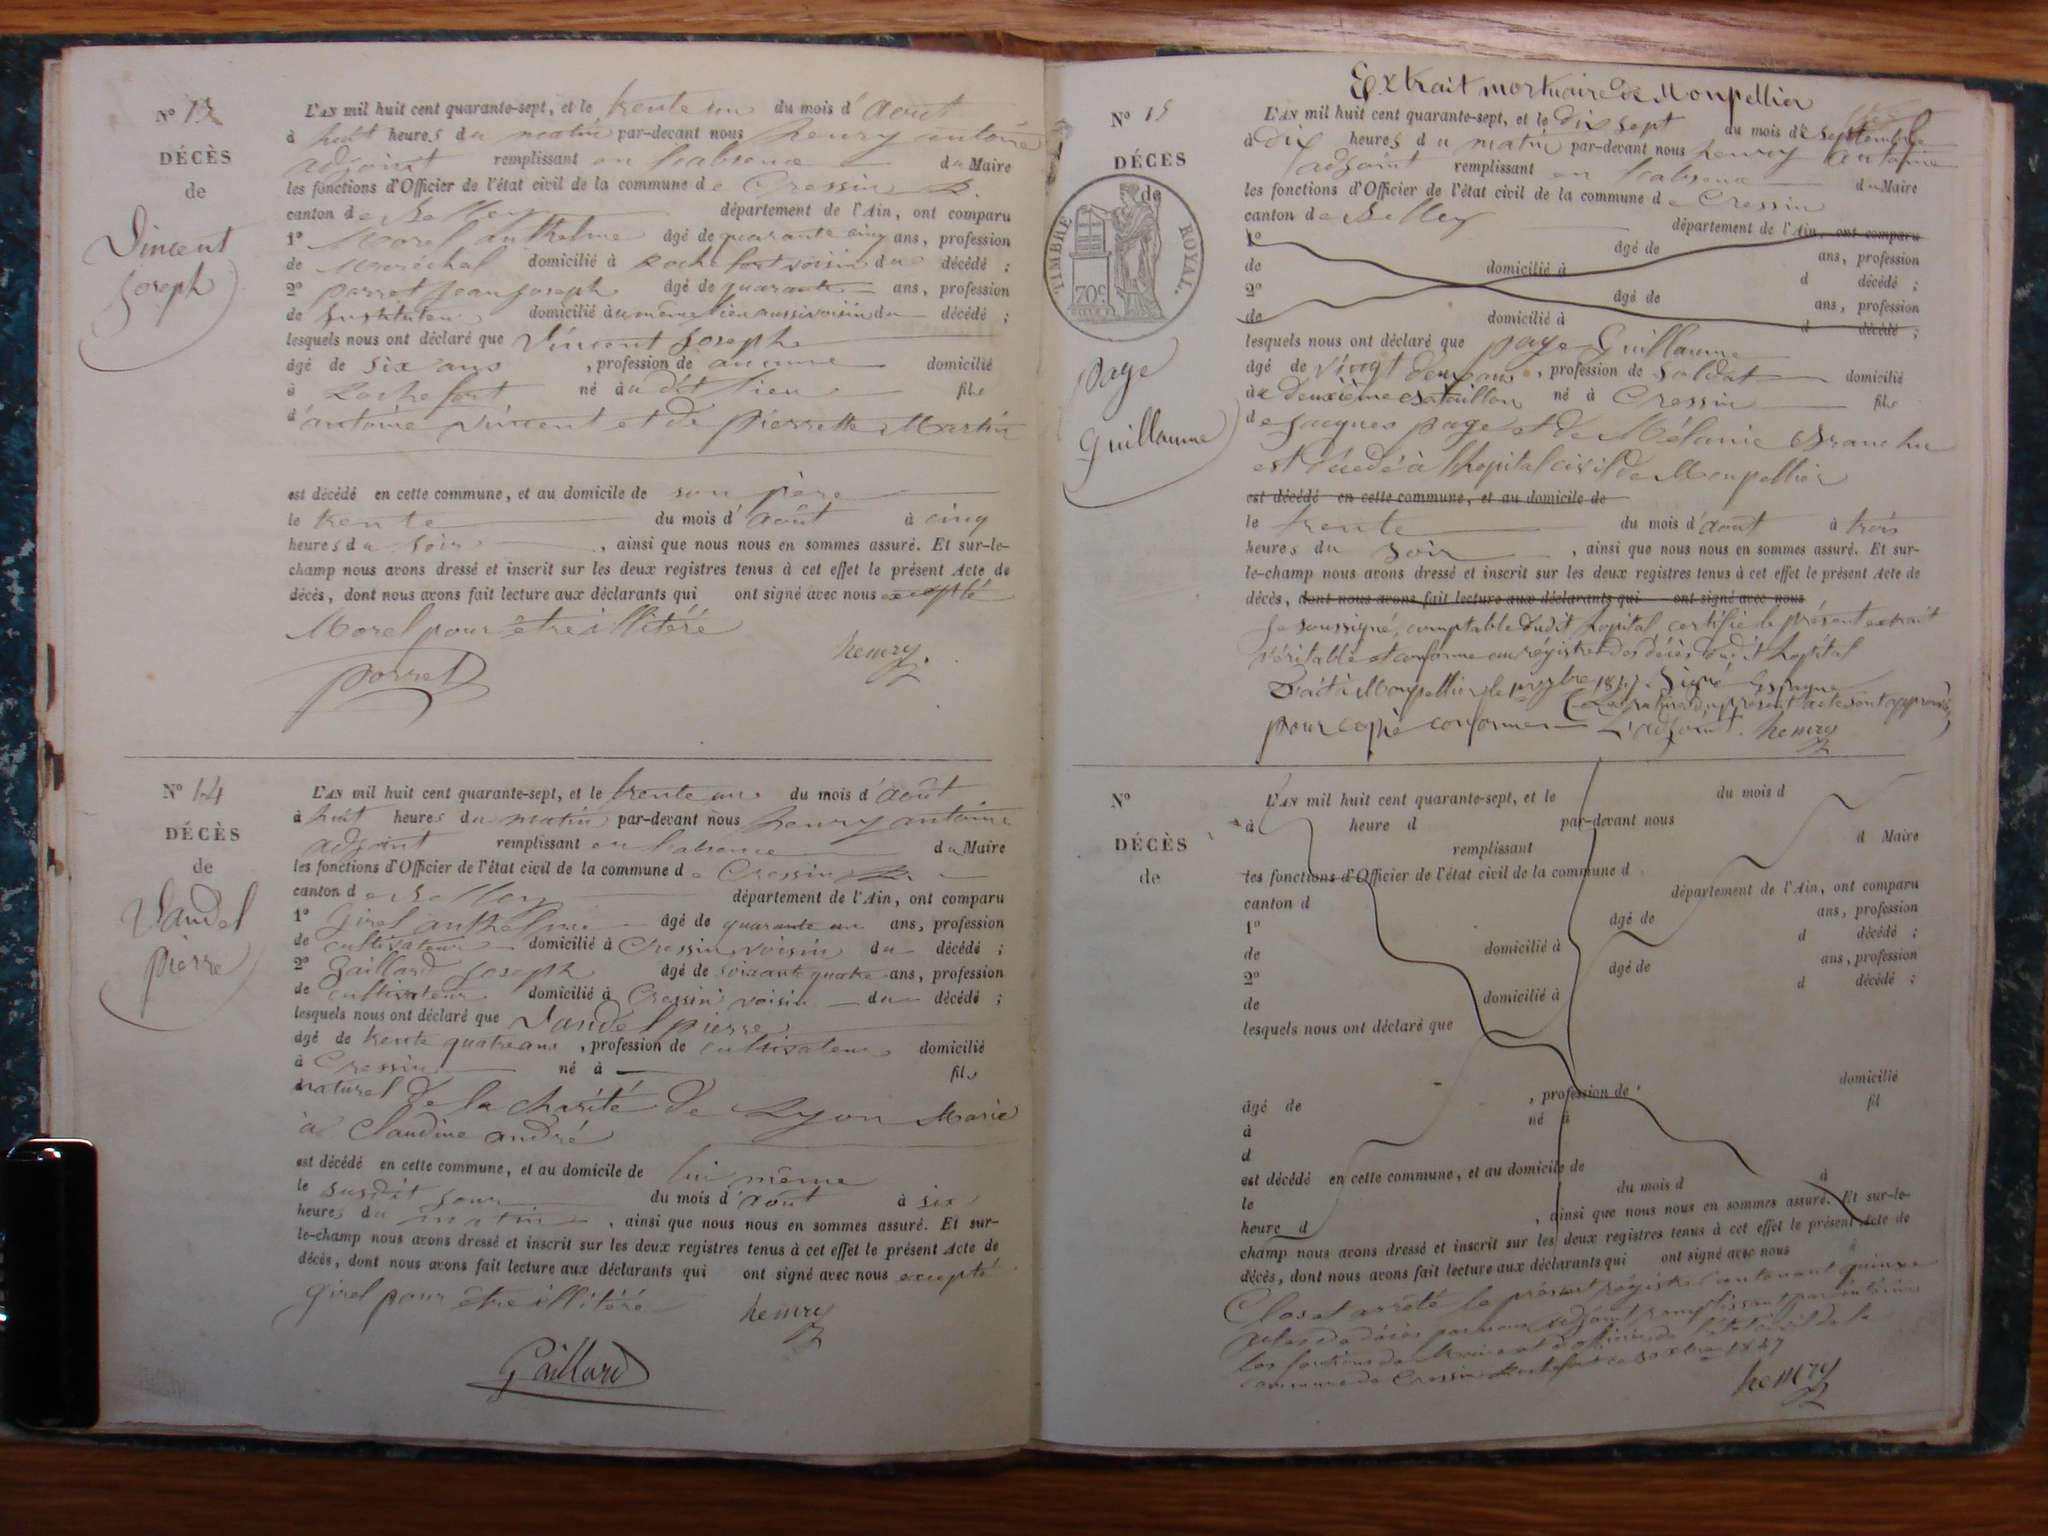 N° 13
DÉCÈS
de
Vincent
Joseph
L'AN mil huit cent quarante-sept, et le trente un du mois d'août
à huit heures du matin par-devant nous henry antoine
adjoint remplissant en l'absence du Maire
les fonctions d'Officier de l'état civil de la commune de Cressin R.
canton de Belley département de l'Ain, ont comparu
1° Morel anthelme âgé de quarante cinq ans, profession
de Maréchal domicilié à Rochefort voisin du décédé ;
2° porret jean joseph âgé de quarante ans, profession
de instituteur domicilié au même lieu aussi voisin du décédé ;
lesquels nous ont déclaré que Vincent Joseph
âgé de six ans , profession de aucune domicilié
à Rochefort né au dit lieu fils
d'antoine Vincent et de pierrette Martin
est décédé en cette commune, et au domicile de son père
le trente du mois d'août à cinq
heures du soir , ainsi que nous nous en sommes assuré. Et sur-le-
champ nous avons dressé et inscrit sur les deux registres tenus à cet effet le présent Acte de
décès, dont nous avons fait lecture aux déclarants qui ont signé avec nous excepté
Morel pour être illitéré
henry
porret
N° 14
DÉCÈS
de
Vandel
pierre
L'AN mil huit cent quarante-sept, et le trente un du mois d'août
à huit heures du matin par-devant nous henry antoine
adjoint remplissant en l'absence du Maire
les fonctions d'Officier de l'état civil de la commune de Cressin R.
canton de Belley département de l'Ain, ont comparu
1° Girel anthelme âgé de quarante un ans, profession
de cultivateur domicilié à Cressin voisin du décédé ;
2° Gaillard Joseph âgé de soixante quatre ans, profession
de cultivateur domicilié à Cressin voisin du décédé ;
lesquels nous ont déclaré que Vandel pierre
âgé de trente quatre ans , profession de cultivateur domicilié
à Cressin né à fils
naturel de la charité de Lyon Marié
à Claudine andré
est décédé en cette commune, et au domicile de lui même
le susdit jour du mois d'août à six
heures du matin , ainsi que nous nous en sommes assuré. Et sur-
le-champ nous avons dressé et inscrit sur les deux registres tenus à cet effet le présent Acte de
décès, dont nous avons fait lecture aux déclarants qui ont signé avec nous excepté
girel pour être illitéré henry
Gaillard
Extrait mortuaire de Monpellier
N° 15
DÉCÈS
de
TIMBRE ROYAL.
70c
page
Guillaume
L'AN mil huit cent quarante-sept, et le dix sept du mois de septembre
à dix heures du matin par-devant nous henry antoine
adjoint remplissant en l'absence du Maire
les fonctions d'Officier de l'état civil de la commune de Cressin
canton de Belley département de l'Ain, ont comparu
1° âgé de ans, profession
de domicilié à d décédé ;
2° âgé de ans, profession
de domicilié à d décédé ;
lesquels nous ont déclaré que page Guillaume
âgé de vingt deux ans , profession de soldat domicilié
au deuxième bataillon né à Cressin fils
de jaques page et de Mélanie Branchu
est décédé à l'hopital civil de Monpellier
est décédé en cette commune, et au domicile de
le trente du mois d'août à trois
heures du soir , ainsi que nous nous en sommes assuré. Et sur-
le-champ nous avons dressé et inscrit sur les deux registres tenus à cet effet le présent Acte de
décès, dont nous avons fait lecture aux déclarants qui ont signé avec nous
je soussigné, comptable dudit hopital certifie le présent extrait
véritable et conforme au régistre des décès dudit hopital
Fait à Monpellier le 1er 7bre 1847. Signé Espagne
(Les ratures du présent acte sont approuvées)
pour copie conforme L'adjoint henry
N°
DÉCÈS
de
L'AN mil huit cent quarante-sept, et le du mois d
à heure d par-devant nous
remplissant d Maire
les fonctions d'Officier de l'état civil de la commune d
canton d département de l'Ain, ont comparu
1° âgé de ans, profession
de domicilié à d décédé ;
2° âgé de ans, profession
de domicilié à d décédé ;
lesquels nous ont déclaré que
âgé de , profession de domicilié
à né à fil
d
est décédé en cette commune, et au domicile de
le du mois d à
heure d , ainsi que nous nous en sommes assuré. Et sur-le-
champ nous avons dressé et inscrit sur les deux registres tenus à cet effet le présent Acte de
décès, dont nous avons fait lecture aux déclarants qui ont signé avec nous
Clos et arrêté le présent régistre contenant quinze
actes de décès par nous adjoint remplissant par intérim
les fonctions de Maire et d'officier de l'état civil de la
commune de Cressin Rochefort ce 1847
henry